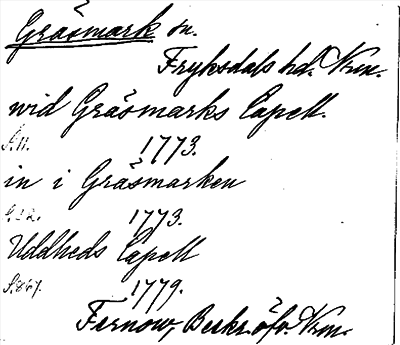 Gräsmark sn.
Fryksdals hd. Vrm.
wid Gräsmarks Capell.
S. 11. 1773.
in i Gräsmarken
1773.
Uddheds Capell
1779.
Fernow, Beskr. öfv. Vrm.